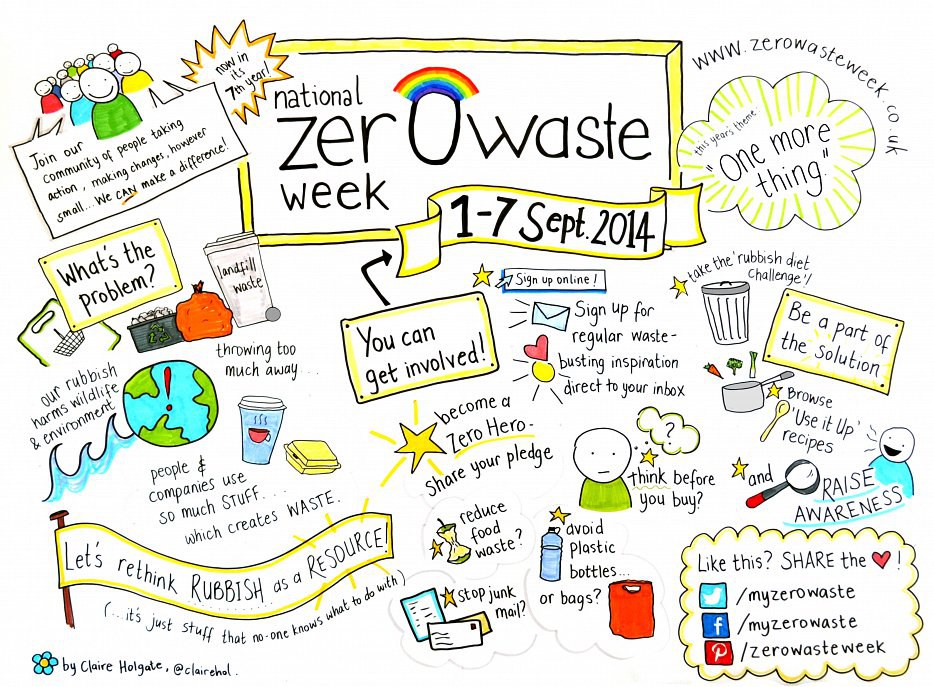 now in
its
7th year!
national
zerowaste
week
1-7 Sept. 2014
www.zerowasteweek.co.uk
this years theme
"One more
thing."
Join our
community of people taking
action, making changes, however
small... We CAN make a difference!
What's the
problem?
landfill
waste
throwing too
much away...
our rubbish
harms wildlife
& environment
people &
companies use
so much STUFF....
which creates WASTE.
Let's rethink RUBBISH as a RESOURCE!
(...it's just stuff that no-one knows what to do with)
by Claire Holgate, @clairehol.
You can
get involved!
Sign up online!
Sign up for
regular waste-
busting inspiration
direct to your inbox
become a
Zero Hero-
share your pledge
?
think before
you buy?
reduce
food
waste?
avoid
plastic
bottles...
or bags?
stop junk
mail?
take the 'rubbish diet
challenge'!
Be a part of
the solution
Browse
'Use it Up'
recipes
and
RAISE
AWARENESS
Like this? SHARE the !
/myzerowaste
/myzerowaste
/zerowasteweek